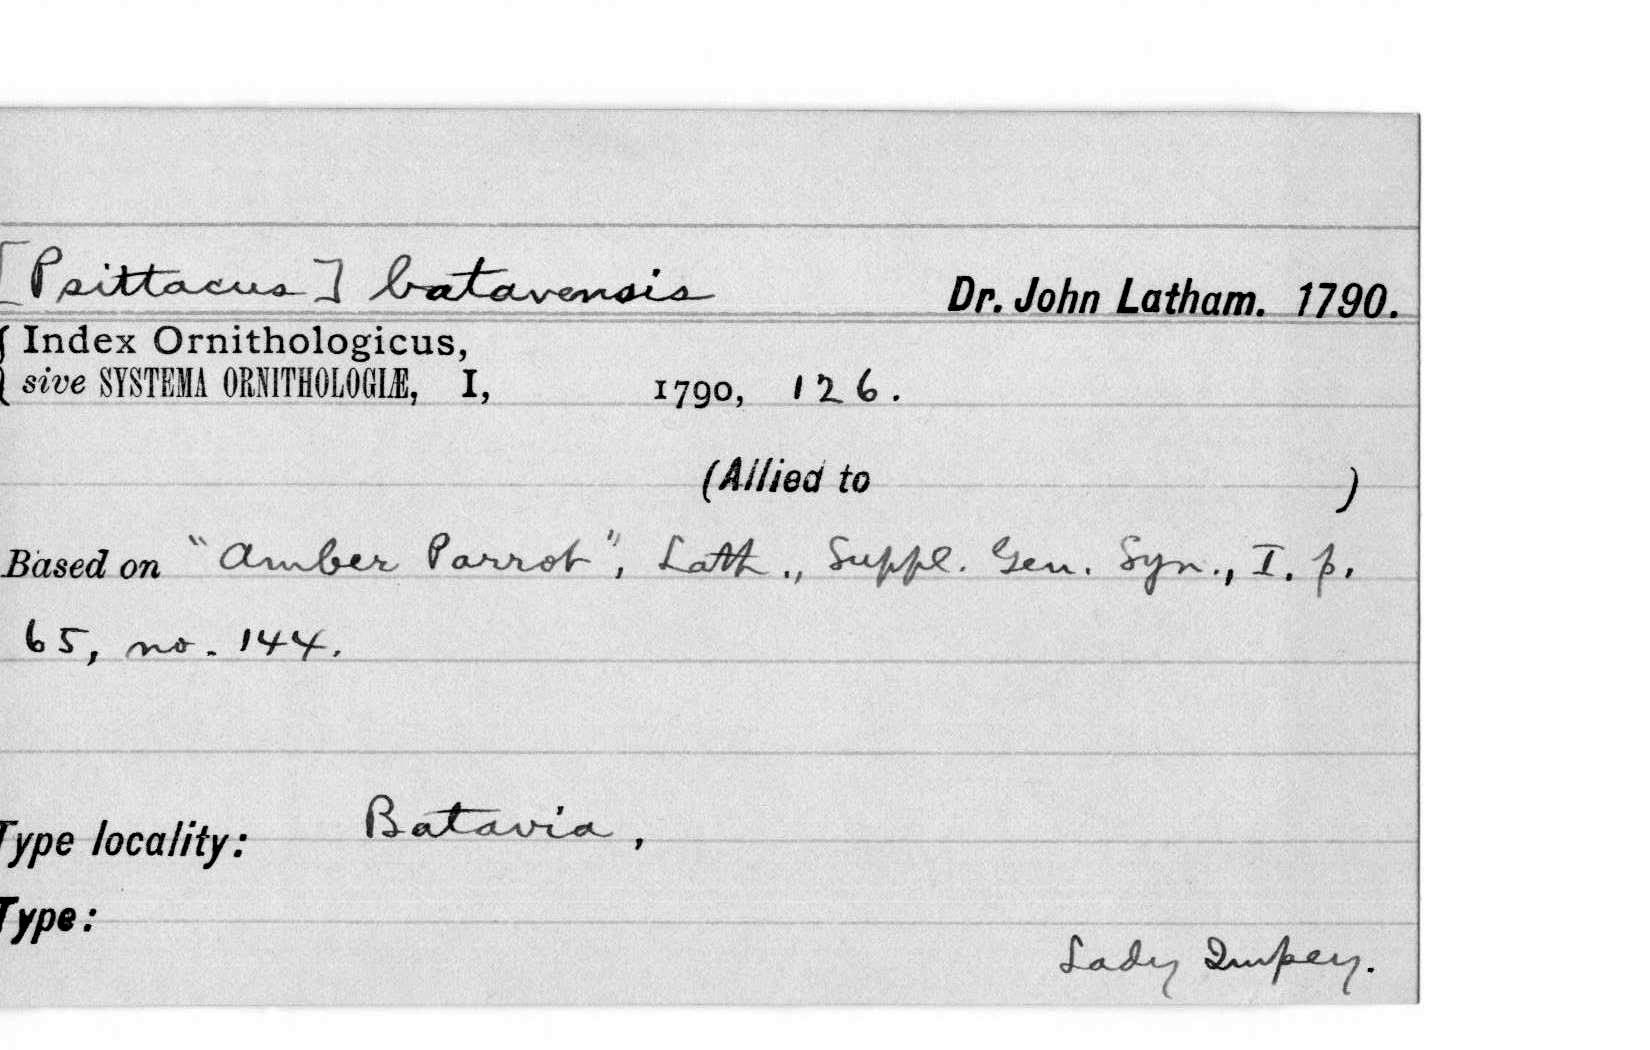 [Psittacus] batavensis Dr. John Latham. 1790.
{ Index Ornithologicus,
sive SYSTEMA ORNITHOLOGIÆ, I, 1790, 126.
(Allied to )
Based on "Amber Parrot", Lath., Suppl. Gen. Syn., I. p.
65, no. 144.
Type locality: Batavia,
Type:
Lady Impey.